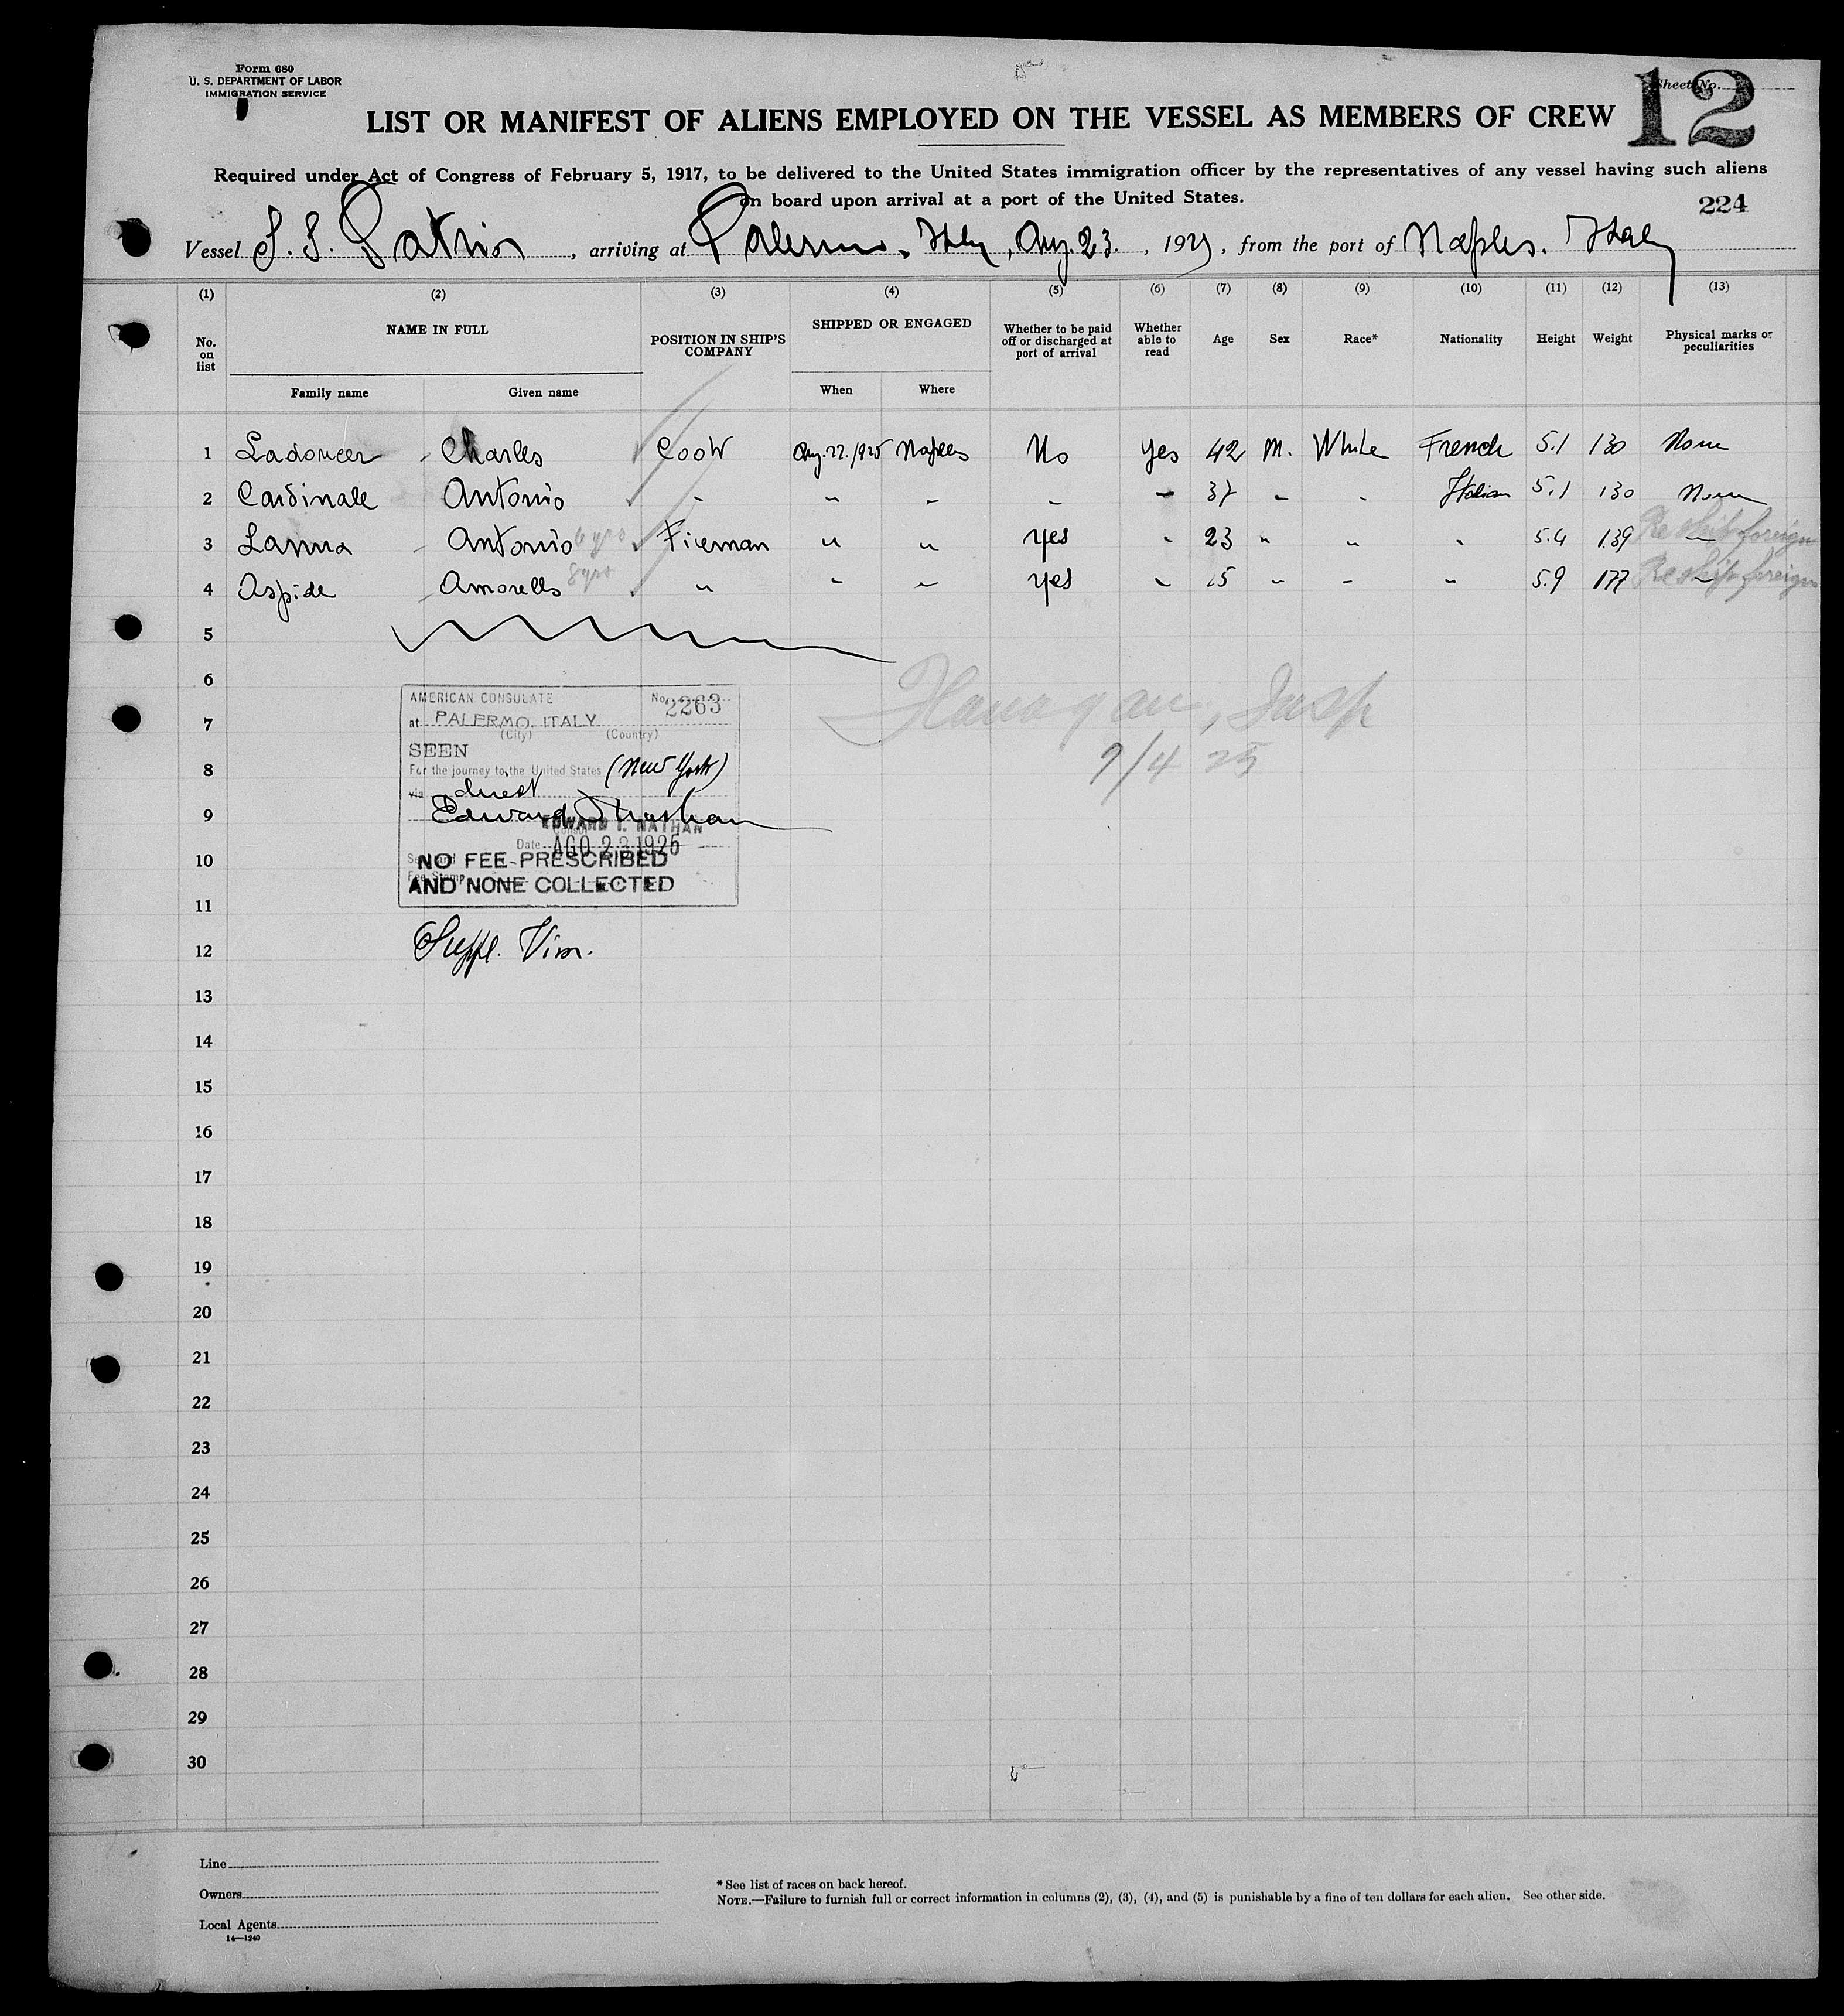 Form 680
U. S. DEPARTMENT OF LABOR
IMMIGRATION SERVICE
Sheet No.
12
LIST OR MANIFEST OF ALIENS EMPLOYED ON THE VESSEL AS MEMBERS OF CREW
Required under Act of Congress of February 5, 1917, to be delivered to the United States immigration officer by the representatives of any vessel having such aliens
on board upon arrival at a port of the United States.
224
Vessel S. S. Patria, arriving at Palermo, Italy, Aug. 23., 192, from the port of Naples. Italy
(1) (2) (3) (4) (5) (6) (7) (8) (9) (10) (11) (12) (13)
No. on list NAME IN FULL POSITION IN SHIP'S COMPANY SHIPPED OR ENGAGED Whether to be paid off or discharged at port of arrival Whether able to read Age Sex Race* Nationality Height Weight Physical marks or peculiarities
Family name Given name When Where
1 Ladoucer Charles Cook Aug. 22. 1925 Naples No Yes 42 M. White French 5.1 130 None
2 Cardinale Antonio " " " " " 37 " " Italian 5.1 130 None
3 Lanna Antonio 6 yrs Fireman " " Yes " 23 " " " 5.4 139 " Reship foreign
4 Aspide Amorells 8 yrs " " " Yes " 5 " " " 5.9 177 " Reship foreign
5
6
AMERICAN CONSULATE No. 2263
at PALERMO, ITALY
(City) (Country)
Flanagan, Insp
7
SEEN
9/4 25
8
For the journey to the United States (New York)
via direct
9
Edward I Nathan
EDWARD I. NATHAN
Date AGO 23 1925
10
NO FEE PRESCRIBED
Fee Stamp
AND NONE COLLECTED
11
12 Suppl. Visa.
13
14
15
16
17
18
19
20
21
22
23
24
25
26
27
28
29
30
Line
Owners
Local Agents
14—1240
* See list of races on back hereof.
NOTE.—Failure to furnish full or correct information in columns (2), (3), (4), and (5) is punishable by a fine of ten dollars for each alien. See other side.